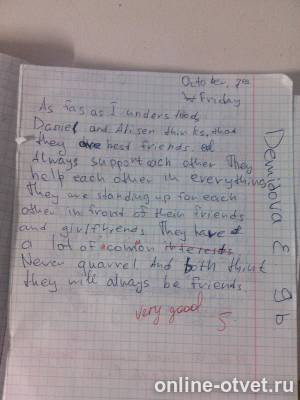 October,
Friday
As far as I understood,
Daniel and Alisen thinks, that
they are best friends
Always support each other They
help each other in everything
They are standing up for each
other in front of their friends
and girlfriends They have
a lot of common interests
Never quarrel And both think
they will always be friends.
very good
5
Demidova E 9b
online-otvet.ru